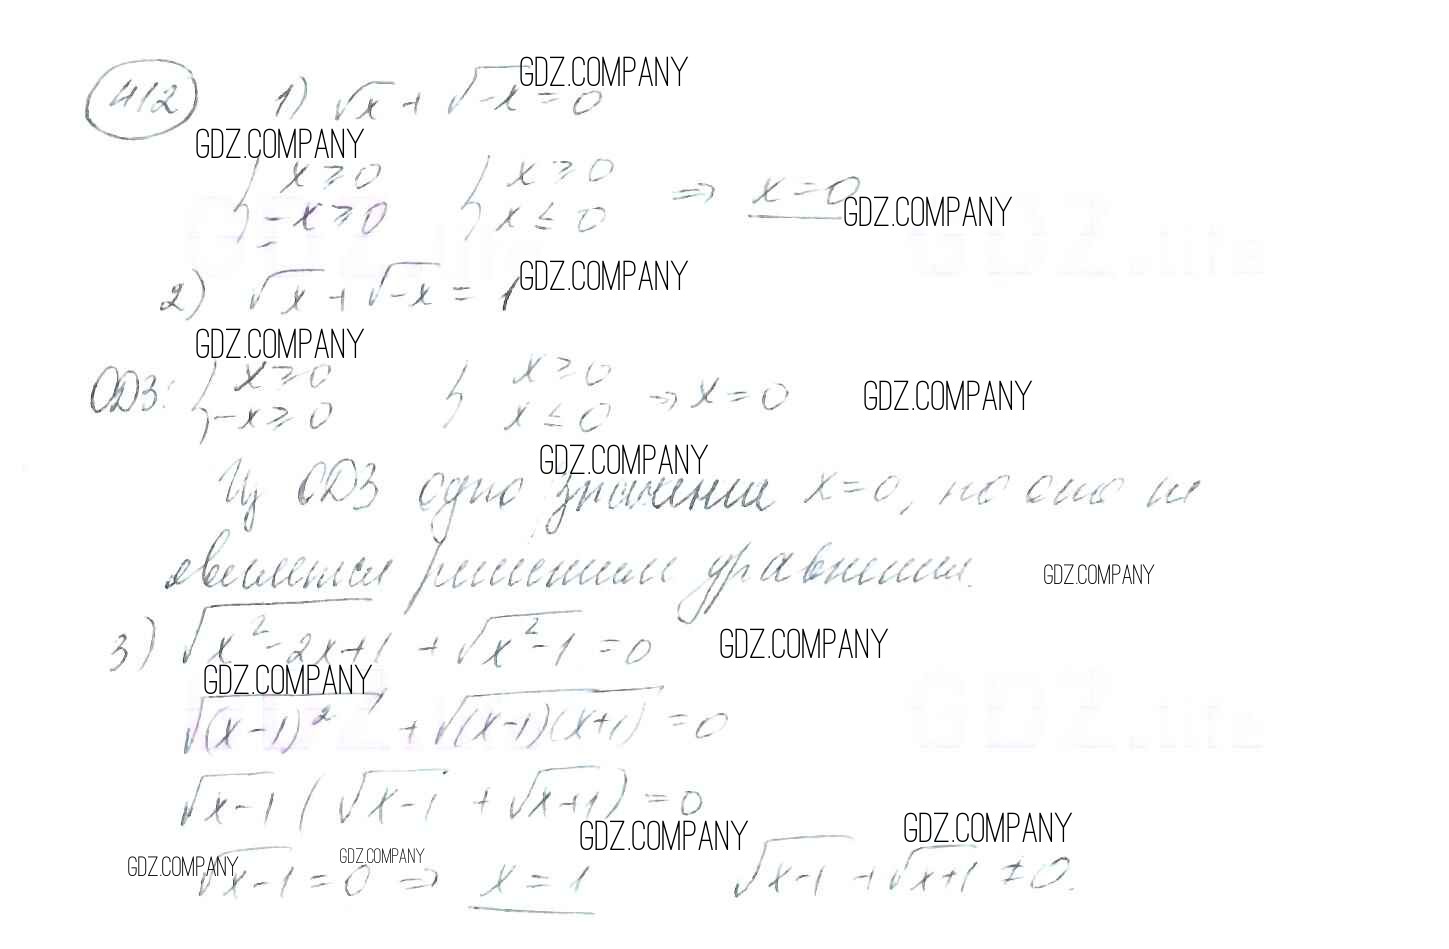 412 1) √x + √-x = 0 GDZ.COMPANY
GDZ.COMPANY
{ x ≥ 0 { x ≥ 0 ⇒ x = 0 GDZ.COMPANY
-x ≥ 0 x ≤ 0
GDZ.life GDZ.life
2) √x + √-x = 1 GDZ.COMPANY
GDZ.COMPANY
ОДЗ: { x ≥ 0 { x ≥ 0 ⇒ x = 0 GDZ.COMPANY
-x ≥ 0 x ≤ 0
GDZ.COMPANY
Из ОДЗ одно значение x = 0, но оно не
является решением уравнения. GDZ.COMPANY
3) √x²-2x+1 + √x²-1 = 0 GDZ.COMPANY
GDZ.COMPANY
√(x-1)² + √(x-1)(x+1) = 0
GDZ.life GDZ.life
√x-1 (√x-1 + √x+1) = 0
GDZ.COMPANY GDZ.COMPANY
GDZ.COMPANY GDZ.COMPANY
√x-1 = 0 ⇒ x = 1 √x-1 + √x+1 ≠ 0.